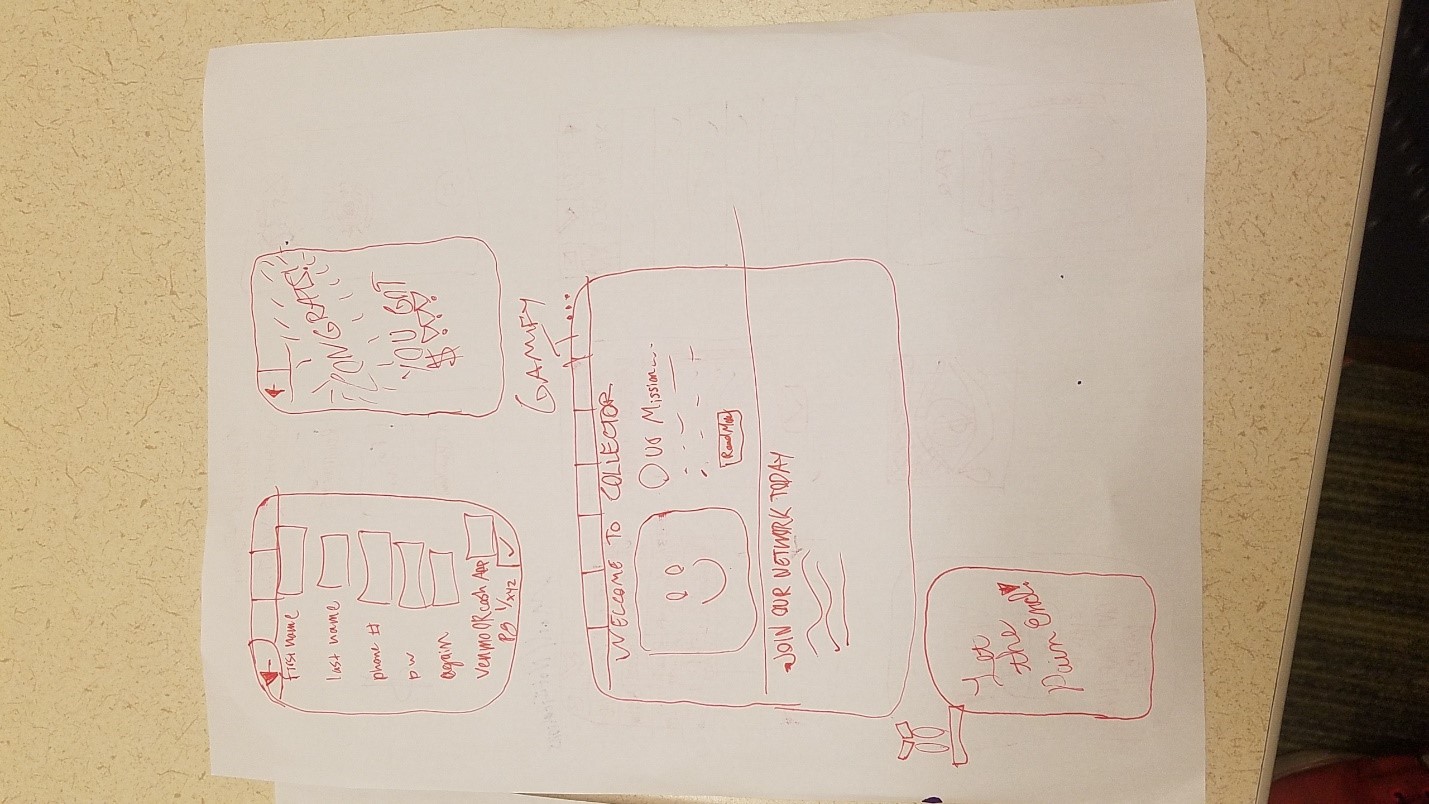 First name
last name
phone #
pw
again
venmo OR cash App
CONGRATS!
YOU GOT
$
GAMIFY
WELCOME TO COLLECTOR
Our Mission...
Read More
JOIN OUR NETWORK TODAY
Let
the
pain end!